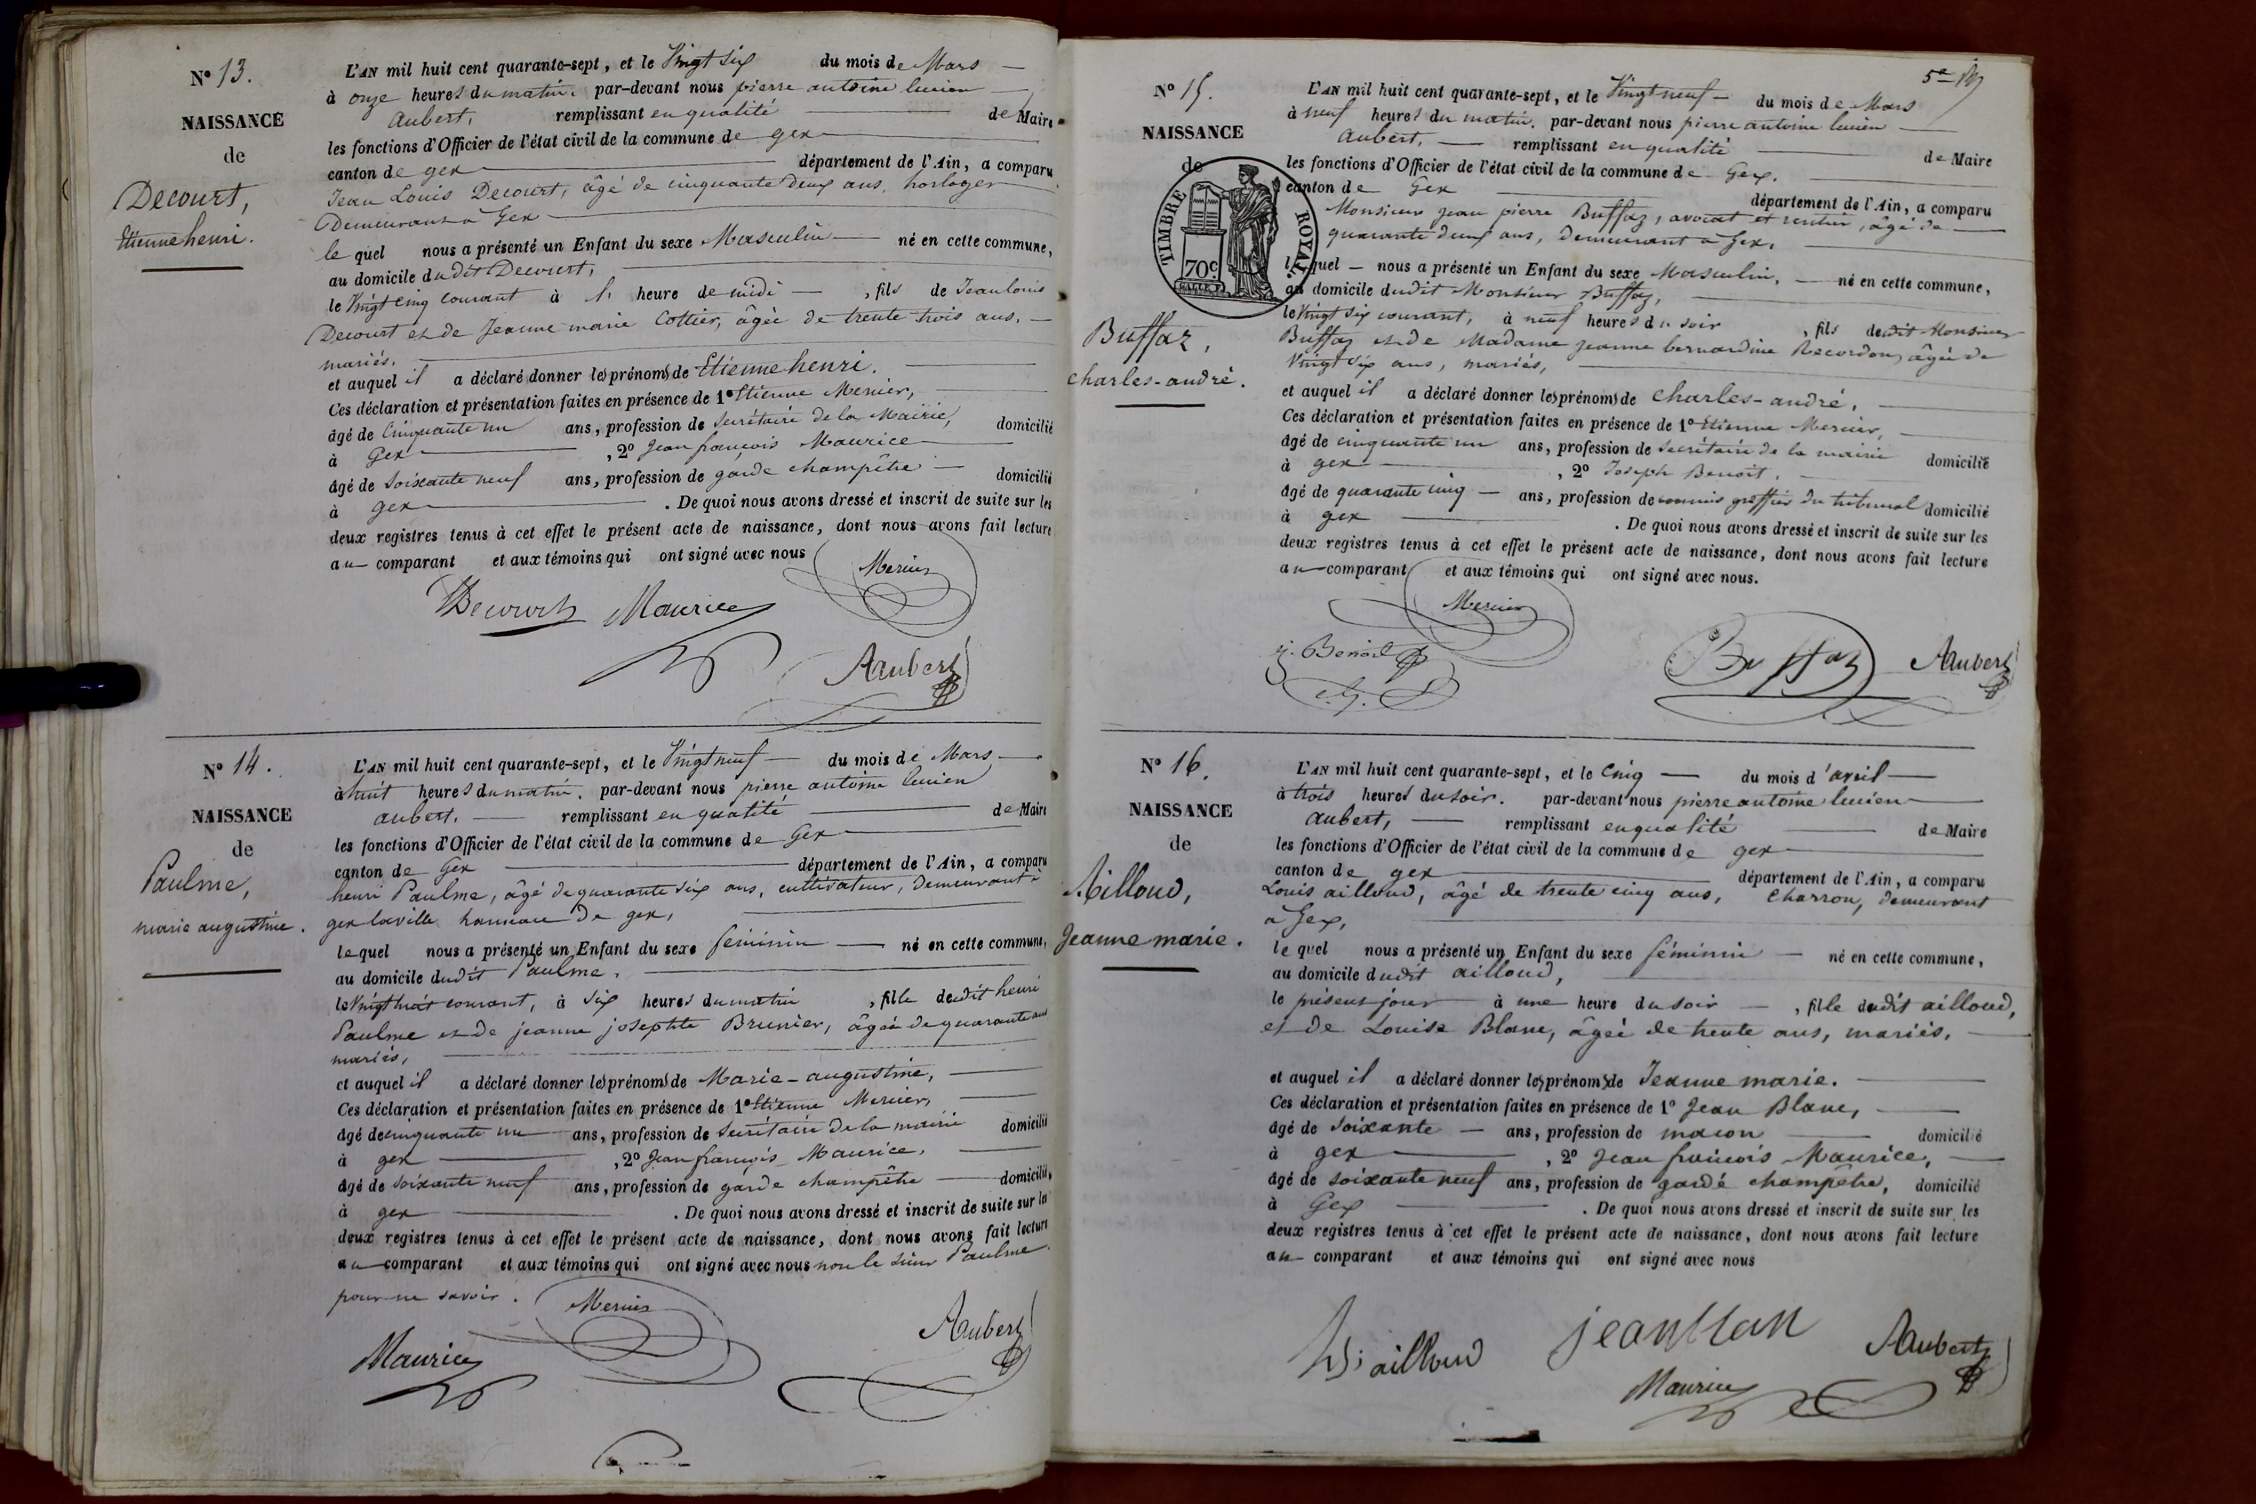 N° 13.
NAISSANCE
de
Decourt,
Etienne henri.
L'AN mil huit cent quarante-sept, et le Vingt Six du mois de Mars
à onze heures du matin. par-devant nous pierre antoine lucien
aubert, remplissant en qualité de Maire
les fonctions d'Officier de l'état civil de la commune de gex
canton de gex département de l'Ain, a comparu
Jean Louis Decourt, âgé de cinquante deux ans, horloger
Demeurant à Gex
le quel nous a présenté un Enfant du sexe Masculin né en cette commune,
au domicile dudit Decourt,
le Vingt cinq courant à 1 heure de midi , fils de Jean louis
Decourt et de Jeanne marie Cottier, âgée de trente trois ans,
mariés.
et auquel il a déclaré donner les prénoms de Etienne henri.
Ces déclaration et présentation faites en présence de 1° Etienne Mercier,
âgé de Cinquante un ans, profession de Secrétaire de la Mairie, domicilié
à Gex , 2° Jean françois Maurice
âgé de Soixante neuf ans, profession de garde champêtre domicilié
à gex . De quoi nous avons dressé et inscrit de suite sur les
deux registres tenus à cet effet le présent acte de naissance, dont nous avons fait lecture
au comparant et aux témoins qui ont signé avec nous
Mercier
Decourt Maurice
Aubert
N° 14.
NAISSANCE
de
Paulme,
marie augustine.
L'AN mil huit cent quarante-sept, et le Vingt neuf du mois de Mars
à huit heures du matin. par-devant nous pierre antoine lucien
aubert. remplissant en qualité de Maire
les fonctions d'Officier de l'état civil de la commune de Gex
canton de Gex département de l'Ain, a comparu
henri Paulme, âgé de quarante six ans, cultivateur, Demeurant à
gex laville hameau de gex,
le quel nous a présenté un Enfant du sexe féminin né en cette commune,
au domicile dudit Paulme,
le Vingt huit courant, à Six heures du matin , fille dudit henri
Paulme et de jeanne josephte Brunier, âgée de quarante ans
mariés,
et auquel il a déclaré donner les prénoms de Marie-augustine,
Ces déclaration et présentation faites en présence de 1° Etienne Mercier,
âgé de cinquante un ans, profession de Secrétaire de la mairie domicilié
à gex , 2° Jean françois Maurice,
âgé de Soixante neuf ans, profession de garde champêtre domicilié,
à gex . De quoi nous avons dressé et inscrit de suite sur les
deux registres tenus à cet effet le présent acte de naissance, dont nous avons fait lecture
au comparant et aux témoins qui ont signé avec nous non le Sieur Paulme
pour ne savoir.
Mercier
Maurice
Aubert
5e
N° 15.
NAISSANCE
de
TIMBRE ROYAL
70c.
Buffaz,
charles-andré.
L'AN mil huit cent quarante-sept, et le Vingt neuf du mois de Mars
à neuf heures du matin. par-devant nous pierre antoine lucien
aubert, remplissant en qualité de Maire
les fonctions d'Officier de l'état civil de la commune de Gex.
canton de Gex département de l'Ain, a comparu
Monsieur jean pierre Buffaz, avocat et rentier, âgé de
quarante deux ans, demeurant à Gex,
lequel nous a présenté un Enfant du sexe Masculin, né en cette commune,
au domicile dudit Monsieur Buffaz,
le Vingt six courant, à neuf heures du soir , fils dudit Monsieur
Buffaz et de Madame jeanne bernardine Recordon, âgée de
Vingt six ans, mariés,
et auquel il a déclaré donner les prénoms de charles-andré.
Ces déclaration et présentation faites en présence de 1° Etienne Mercier,
âgé de cinquante un ans, profession de Secrétaire de la mairie domicilié
à gex , 2° Joseph Benoit,
âgé de quarante cinq ans, profession de commis greffier du tribunal domicilié
à gex . De quoi nous avons dressé et inscrit de suite sur les
deux registres tenus à cet effet le présent acte de naissance, dont nous avons fait lecture
au comparant et aux témoins qui ont signé avec nous.
Mercier
j. Benoit
Buffaz Aubert
N° 16.
NAISSANCE
de
Ailloud,
Jeanne marie.
L'AN mil huit cent quarante-sept, et le Cinq du mois d'avril
à trois heures du soir. par-devant nous pierre antoine lucien
aubert, remplissant en qualité de Maire
les fonctions d'Officier de l'état civil de la commune de gex
canton de gex département de l'Ain, a comparu
Louis ailloud, âgé de trente cinq ans, Charron, demeurant
à Gex,
le quel nous a présenté un Enfant du sexe féminin né en cette commune,
au domicile dudit ailloud,
le présent jour à une heure du soir , fille dudit ailloud,
et de Louise Blanc, âgée de trente ans, mariés,
et auquel il a déclaré donner les prénoms de Jeanne marie.
Ces déclaration et présentation faites en présence de 1° Jean Blanc,
âgé de Soixante ans, profession de maçon domicilié
à gex , 2° Jean françois Maurice,
âgé de soixante neuf ans, profession de garde champêtre, domicilié
à Gex . De quoi nous avons dressé et inscrit de suite sur les
deux registres tenus à cet effet le présent acte de naissance, dont nous avons fait lecture
au comparant et aux témoins qui ont signé avec nous
ailloud jean blan Aubert
Maurice